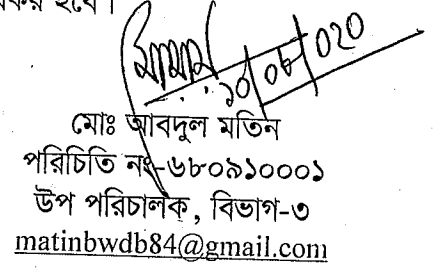 হবে।
মোঃ আবদুল মতিন
পরিচিতি নং-৬৮০৯১০০০১
উপ পরিচালক, বিভাগ-৩
matinbwdb84@gmail.com